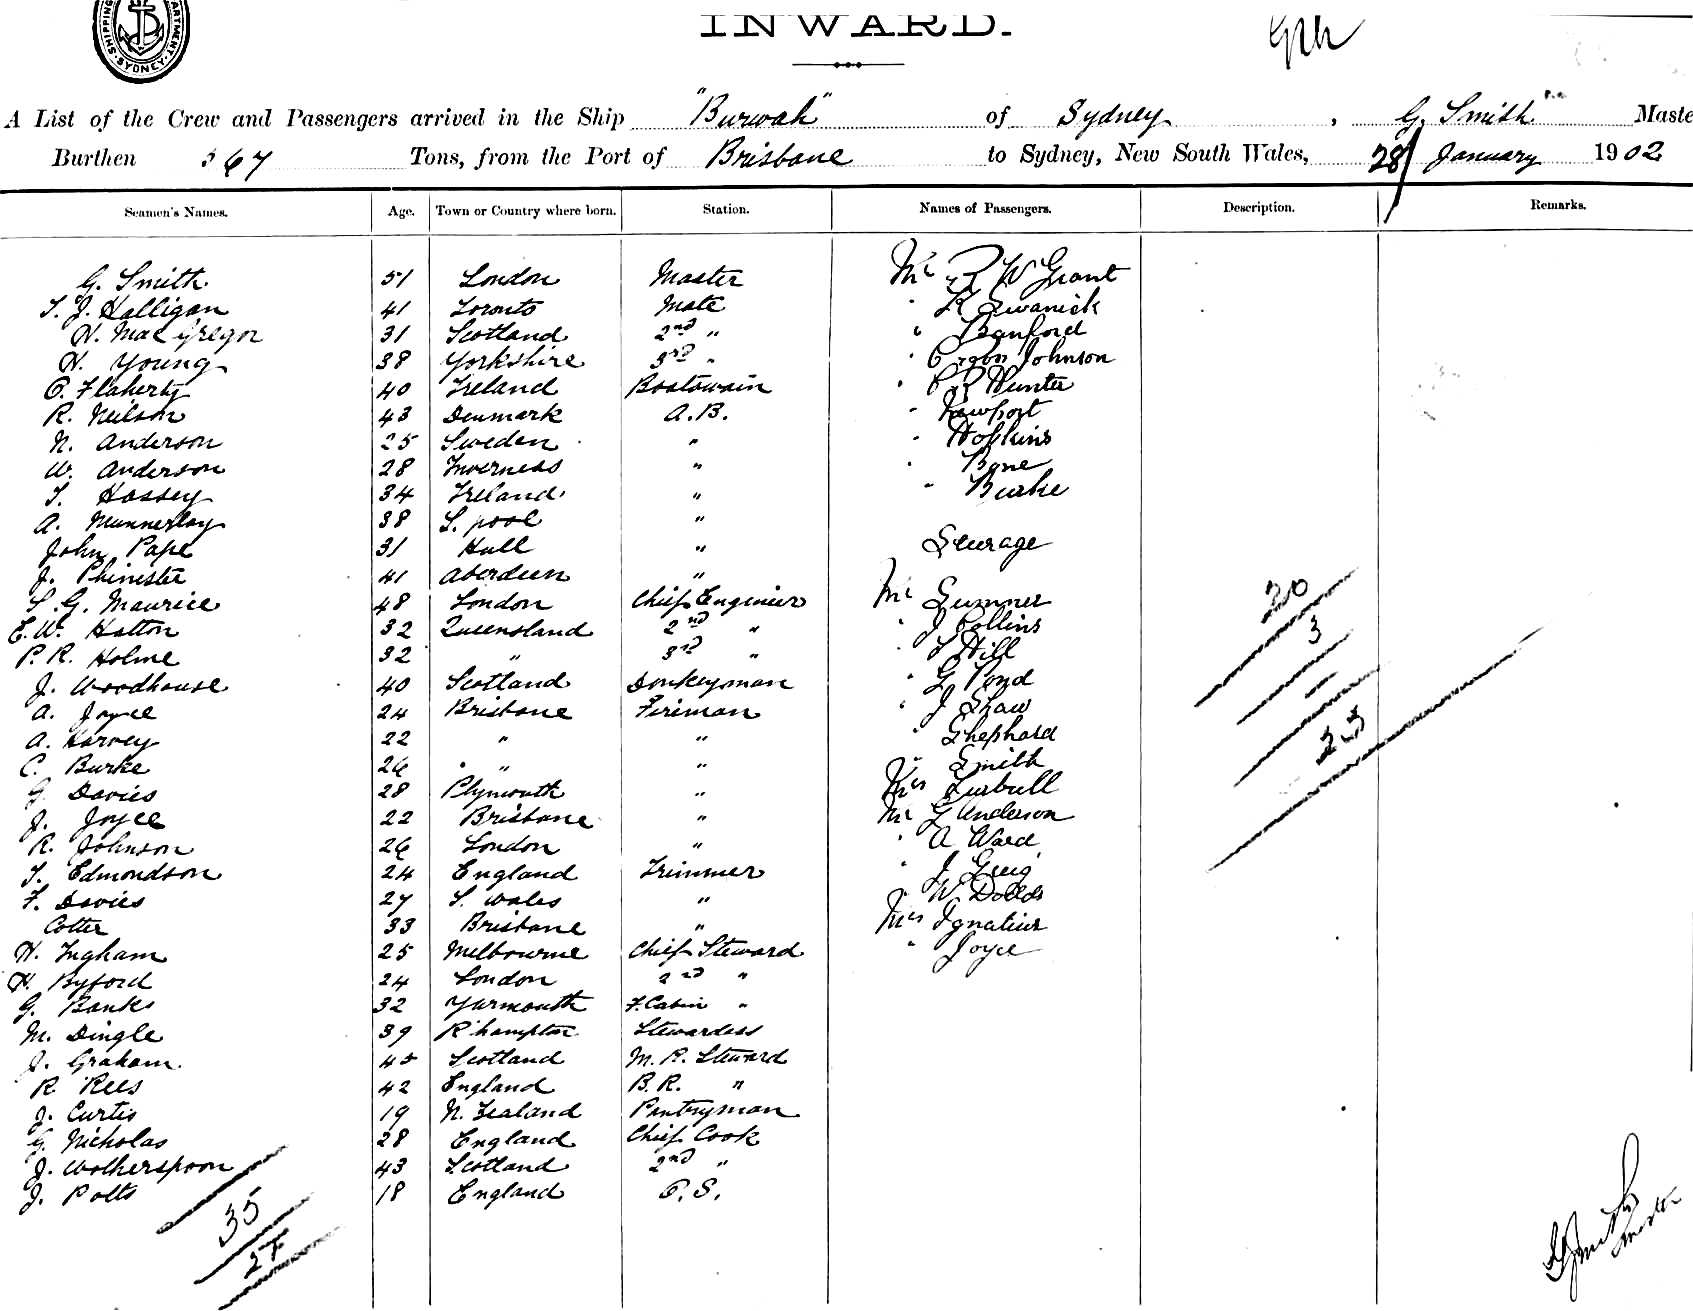 SHIPPING DEPARTMENT SYDNEY
INWARD.
A List of the Crew and Passengers arrived in the Ship "Burwah" of Sydney, G. Smith Maste
Burthen 567 Tons, from the Port of Brisbane to Sydney, New South Wales, 28/ January 1902
Seamen's Names. Age. Town or Country where born. Station. Names of Passengers. Description. Remarks.
G. Smith 51 London Master Mr W Grant
T. J. Halligan 41 Toronto Mate " R Swanick
H. MacGregor 31 Scotland 2nd " " Banford
H. Young 38 Yorkshire 3rd " " Johnson
O. Flaherty 40 Ireland Boatswain " Hunter
R. Neilson 43 Denmark A.B. " Newport
N. Anderson 25 Sweden " " Hopkins
W. Anderson 28 Inverness " " Bone
T. Hossey 34 Ireland " " Burke
A. Munnerley 38 L. pool "
John Pape 31 Hull " Steerage
J. Phinester 41 Aberdeen "
S. G. Maurice 48 London Chief Enginier Mr Sumner
E. W. Hatton 32 Queensland 2nd " " J Collins
P. R. Holme 32 " 3rd " " T Hill
J. Woodhouse 40 Scotland Donkeyman " G Pond
A. Joyce 24 Brisbane Fireman " J Shaw
A. Harvey 22 " " " Shephard
C. Burke 26 " " " Smith
G. Davies 28 Plymouth " Mrs Turbull
J. Joyce 22 Brisbane " Mr G Anderson
R. Johnson 26 London " " A Ward
T. Edmondson 24 England Trimmer " J Greig
F. Davies 27 S. Wales " " W Dodds
Cotter 33 Brisbane " Mrs Ignatius
H. Ingham 25 Melbourne Chief Steward " Joyce
H. Byford 24 London 2nd "
G. Banks 32 Yarmouth F. Cabin "
M. Dingle 39 R'hampton Stewardess
J. Graham 45 Scotland M. R. Steward
R Rees 42 England B.R. "
J. Curtis 19 N. Zealand Pantryman
G. Nicholas 28 England Chief Cook
J. Wotherspoon 43 Scotland 2nd "
J. Potts 18 England P. S.
20
3
23
35
27
G Smith
Master